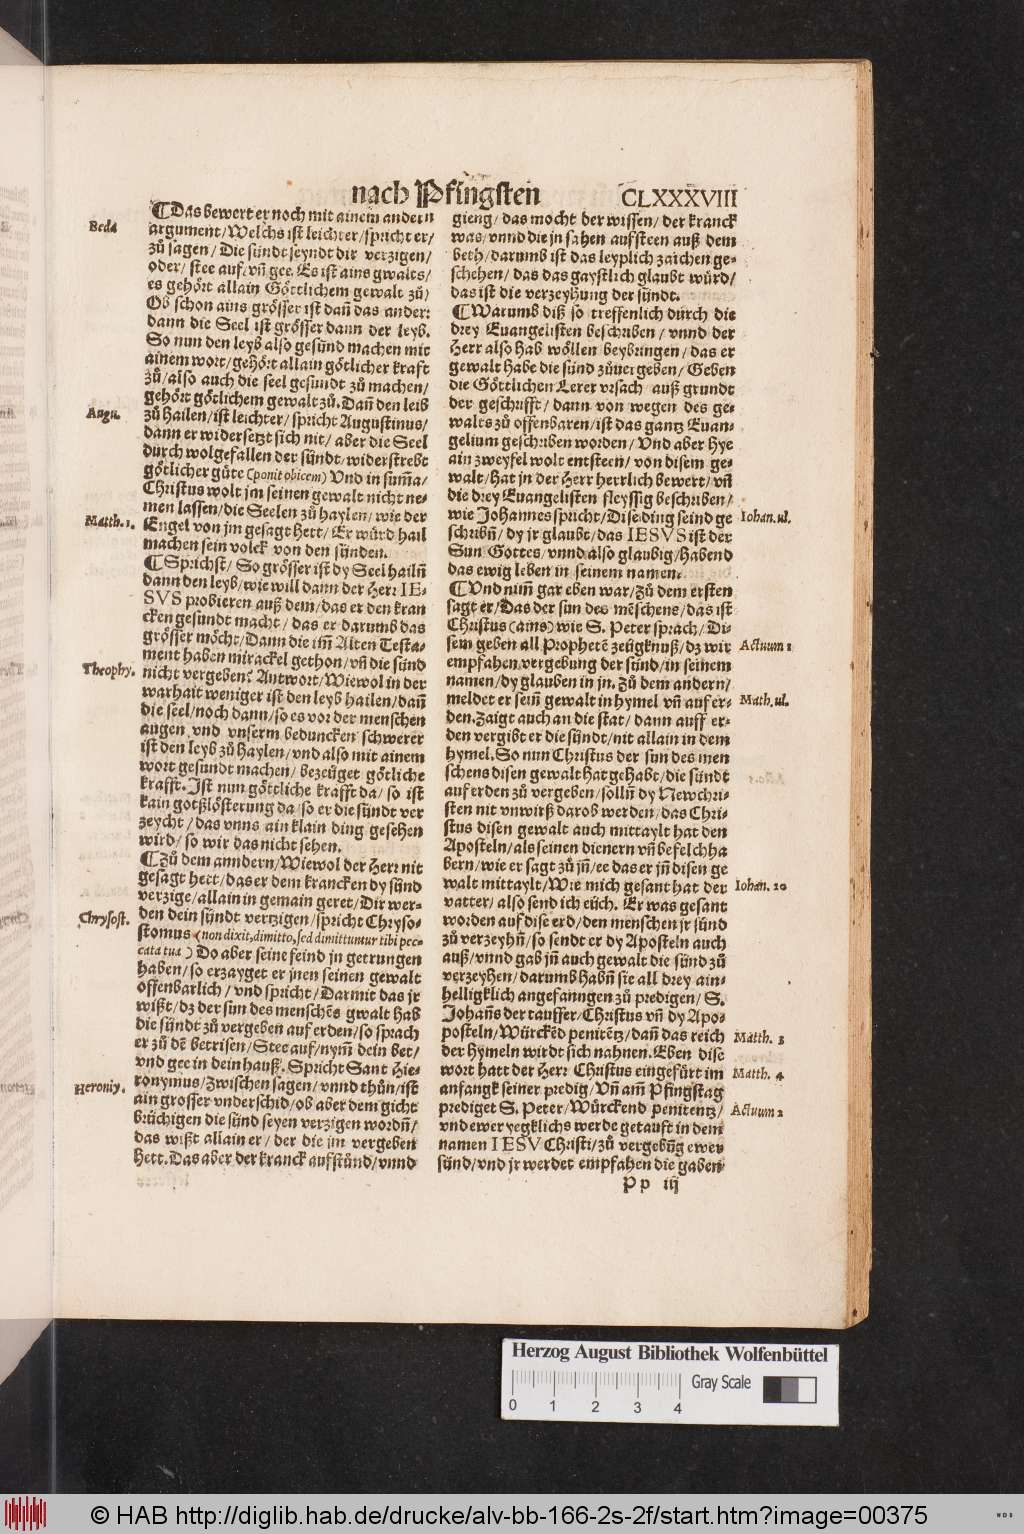 nach Pfingsten CLXXXVIII
¶ Das bewert er noch mit ainem andern
Beda
argument/Welchs ist leichter/spricht er/
zů sagen/Die sündt seyndt dir verzigen/
oder/stee auf/vñ gee. Es ist ains gwalts/
es gehört allain Göttlichem gewalt zů/
Ob schon ains grösser ist dañ das ander:
dann die Seel ist grösser dann der leyb.
So nun den leyb also gesünd machen mit
ainem wort/gehört allain götlicher kraft
zů/also auch die seel gesundt zů machen/
gehört götlichem gewalt zů. Dañ den leib
Augu.
zů hailen/ist leichter/spricht Augustinus/
dann er widersetzt sich nit/aber die Seel
durch wolgefallen der sündt/widerstrebt
götlicher güte (ponit obicem) Vnd in sum̃a/
Christus wolt jm seinen gewalt nicht ne-
men lassen/die Seelen zů haylen/wie der
Matth. 1.
Engel von jm gesagt hett/Er würd hail
machen sein volck von den sünden.
¶ Sprichst/So grösser ist dy Seel hailñ
dann den leyb/wie will dann der Herr IE-
SVS probieren auß dem/das er den kran
cken gesundt macht/das er darumb das
grösser möcht/Dann die im̃ Alten Testa-
ment haben mirackel gethon/vñ die sünd
Theophy.
nicht vergeben? Antwort/Wiewol in der
warhait weniger ist den leyb hailen/dañ
die seel/noch dann/so es vor der menschen
augen vnd vnserm beduncken schwerer
ist den leyb zů haylen/vnd also mit ainem
wort gesundt machen/bezeüget götliche
krafft. Ist nun göttliche krafft da/so ist
kain gotßlösterung da/so er die sündt ver
zeycht/das vnns ain klain ding gesehen
wird/so wir das nicht sehen.
¶ Zů dem anndern/Wiewol der Herr nit
gesagt hett/das er dem krancken dy sünd
verzige/allain in gemain geret/Dir wer-
Chrysost.
den dein sündt vertzigen/spricht Chryso-
stomus (non dixit, dimitto, sed dimittuntur tibi pec-
cata tua) Do aber seine feind jn getrungen
haben/so erzayget er jnen seinen gewalt
offenbarlich/vnd spricht/Darmit das jr
wißt/dz der sun des menschēs gwalt hab
die sündt zů vergeben auf erden/so sprach
er zů dē betrisen/Stee auf/nym̃ dein bet/
vnd gee in dein hauß. Spricht Sant Hie-
Heroniy.
ronymus/Zwischen sagen/vnnd thůn/ist
ain grosser vnderschid/ob aber dem gicht
brüchigen die sünd seyen verzigen wordñ/
das wißt allain er/der die jm vergeben
hett. Das aber der kranck aufstünd/vnnd
gieng/das mocht der wissen/der kranck
was/vnnd die jn sahen aufsteen auß dem
beth/darumb ist das leyplich zaichen ge-
schehen/das das gaystlich glaubt würd/
das ist die verzeyhung der sündt.
¶ Warumb diß so treffenlich durch die
drey Euangelisten beschriben/vnnd der
Herr also hab wöllen beybringen/das er
gewalt habe die sünd zůuergeben/Geben
die Göttlichen Lerer vrsach auß grundt
der geschrifft/dann von wegen des ge-
walts zů offenbaren/ist das gantz Euan-
gelium geschriben worden/Vnd aber hye
ain zweyfel wolt entsteen/von disem ge-
walt/hat jn der Herr herrlich bewert/vñ
die drey Euangelisten fleyssig beschriben/
wie Johannes spricht/Dise ding seind ge
Iohan. ul.
schribñ/dy jr glaubt/das IESVS ist der
Sun Gottes/vnnd also glaubig/habend
das ewig leben in seinem namen.
¶ Vnd nim̃ gar eben war/Zů dem ersten
sagt er/Das der sun des mēschens/das ist
Christus (ains) wie S. Peter sprach/Di-
sem geben all Prophetē zeügknuß/dz wir
Actuum 1
empfahen vergebung der sünd/in seinem
namen/dy glauben in jn. Zů dem andern/
meldet er sein̄ gewalt in hymel vñ auf er-
Math. ul.
den. Zaigt auch an die stat/dann auff er-
den vergibt er die sündt/nit allain in dem
hymel. So nun Christus der sun des men
schens disen gewalt hat gehabt/die sündt
auf erden zů vergeben/sollñ dy Newchri-
sten nit vnwirß darob werden/das Chri-
stus disen gewalt auch mittaylt hat den
Aposteln/als seinen dienern vñ befelchha
bern/wie er sagt zů jñ/ee das er jñ disen ge
walt mittaylt/Wie mich gesant hat der
Iohan. 20
vatter/also send ich eüch. Er was gesant
worden auf dise erd/den menschen jr sünd
zů verzeyhñ/so sendt er dy Aposteln auch
auß/vnnd gab jñ auch gewalt die sünd zů
verzeyhen/darumb habñ sie all drey ain-
helligklich angefanngen zů predigen/S.
Johañs der tauffer/Christus vñ dy Apo-
posteln/Würckēd penitētz/dañ das reich
Matth. 3
der Hymeln wirdt sich nahnen. Eben dise
wort hatt der Herr Christus eingefürt im
Matth. 4
anfangk seiner predig/Vñ am̃ Pfingstag
prediget S. Peter/Würckend penitentz/
Actuum 2
vnd ewer yegklichs werde getauft in dem
namen IESV Christi/zů vergebũg ewer
sünd/vnd jr werdet empfahen die gaben
Pp iij
Herzog August Bibliothek Wolfenbüttel
Gray Scale
0 1 2 3 4
© HAB http://diglib.hab.de/drucke/alv-bb-166-2s-2f/start.htm?image=00375